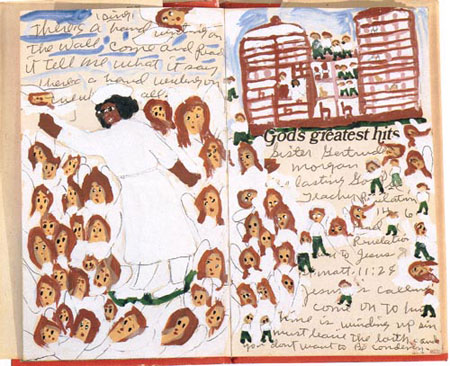 There's a hand writing on
the Wall Come and Read
it tell me what it say
there's a hand writing on
the wall.
God's greatest hits
Sister Gertrude
morgan
lasting Gospel
Teacher Revelation
14 6
and
Revelation
to Jesus
matt. 11:28
Jesus is calling
come on to him
time is winding up sin
must leave the Earth and
you don't want to Be condemn